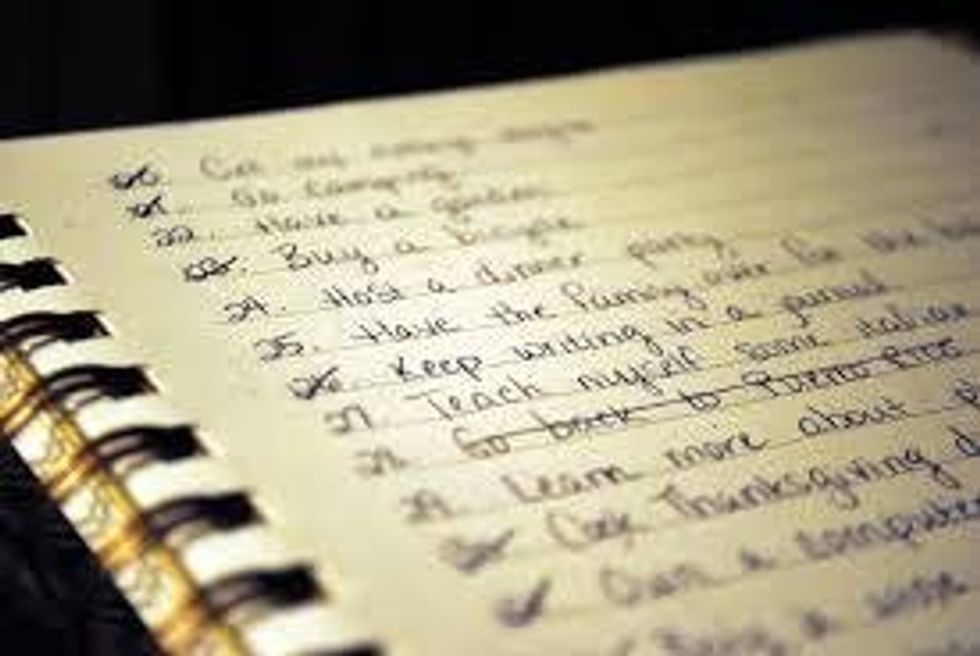 Go camping
22. Have a garden
Buy a bicycle
24. Host a dinner party
25. Have the family over for the
26. Keep writing in a journal
27. Teach myself some italian
28. Go back to Puerto Rico
29. Learn more about
Cook Thanksgiving
Own a computer
Buy a